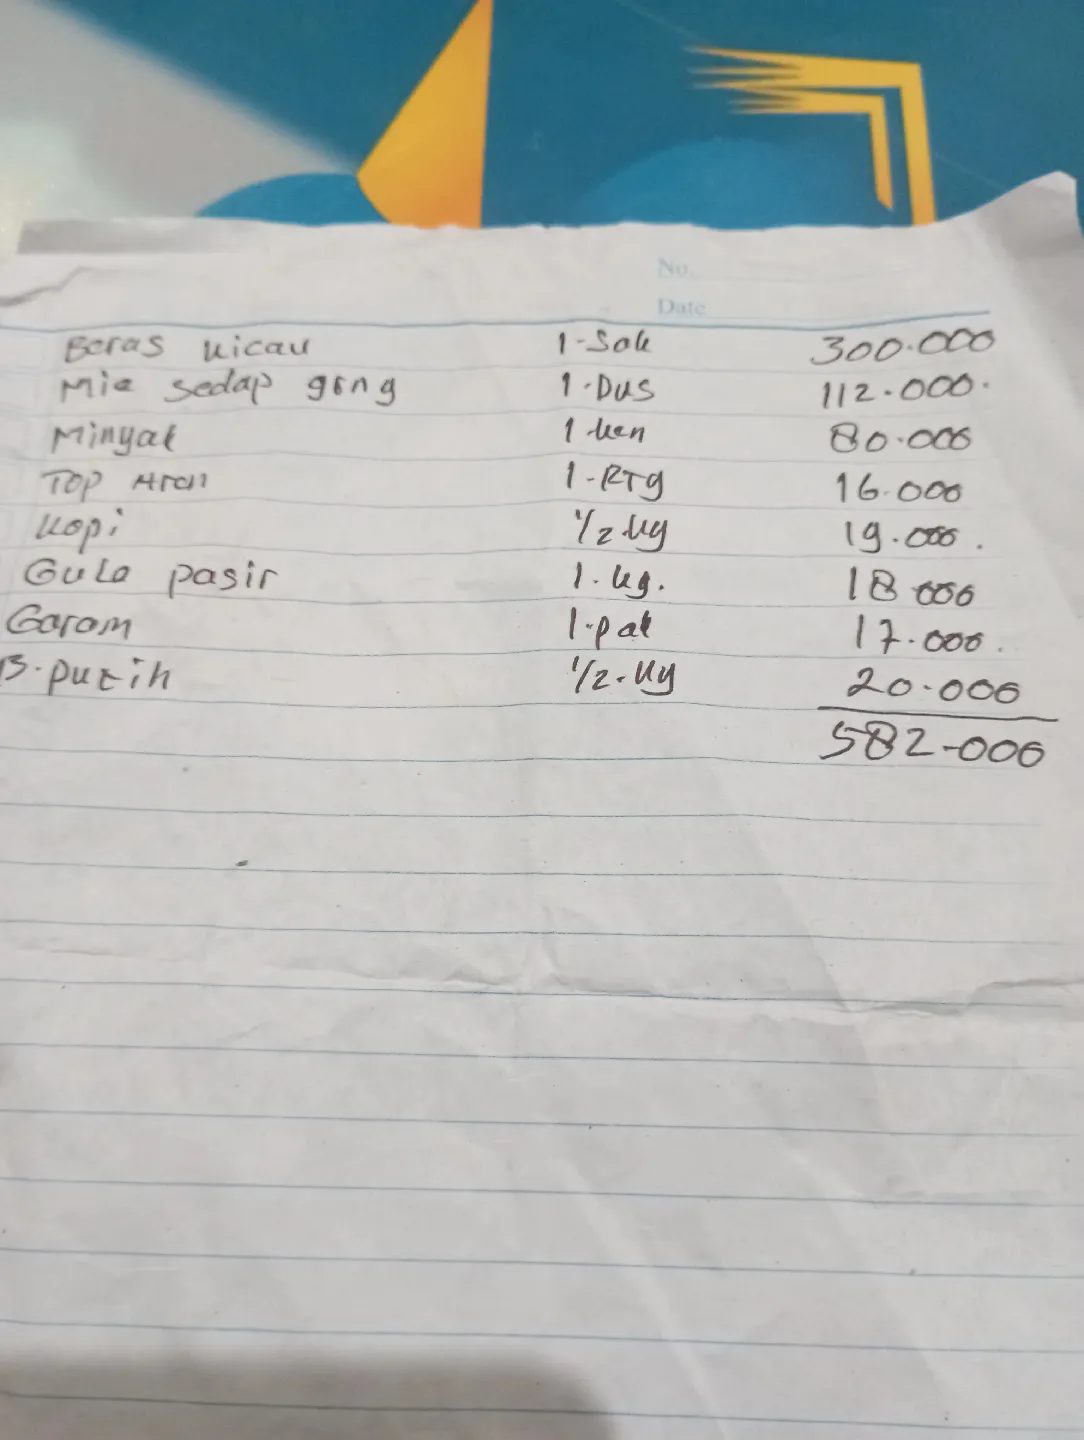 No.
Date
Beras kicau 1-Sak 300.000
Mie sedap grng 1.Dus 112.000.
Minyak 1 ken 80.000
Top Aren 1-RTg 16.000
Kopi 1/2.kg 19.000.
Gula pasir 1.kg. 18 000
Garam 1.pak 17.000.
B.putih 1/2.kg 20.000
582-000